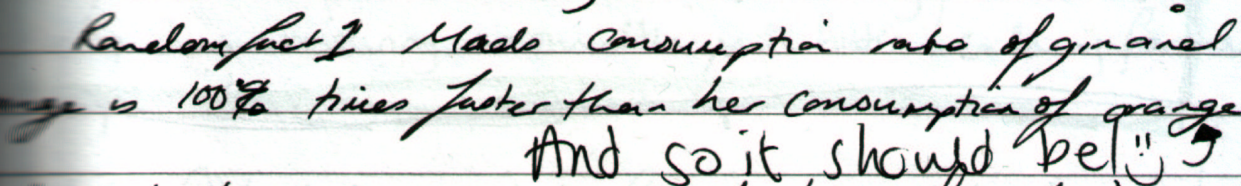 Random fact 1 Mads consumption rate of gin and
is 100% times faster than her consumption of orange
And so it should be! :)